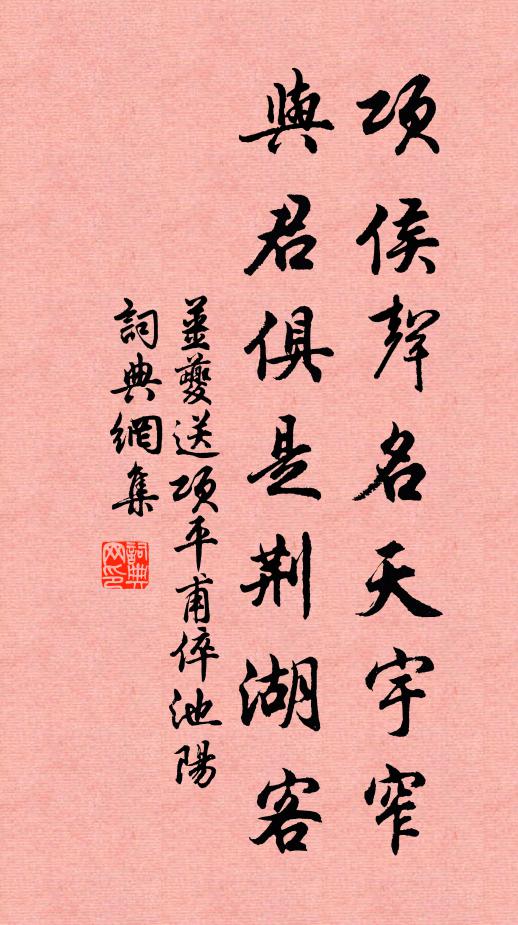 項侯聲名天宇窄
與君俱是荆湖客
姜夔送項平甫倅池陽
詞典網集
詞典網印